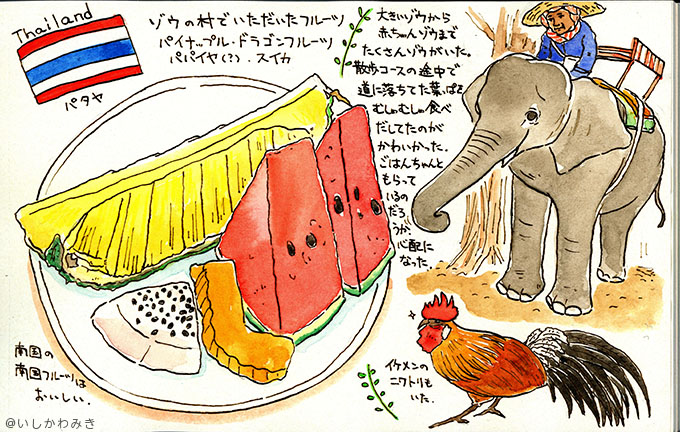 Thailand
パタヤ
ゾウの村でいただいたフルーツ
パイナップル・ドラゴンフルーツ
パパイヤ(?)・スイカ
大きいゾウから
赤ちゃんゾウまで
たくさんゾウがいた。
散歩コースの途中で
道に落ちてた葉っぱを
むしゃむしゃ食べ
だしてたのが
かわいかった。
ごはんちゃんと
もらって
いるの
だろ
うか、
心配に
なった。
南国の
南国フルーツは
おいしい。
イケメンの
ニワトリも
いた。
@いしかわみき